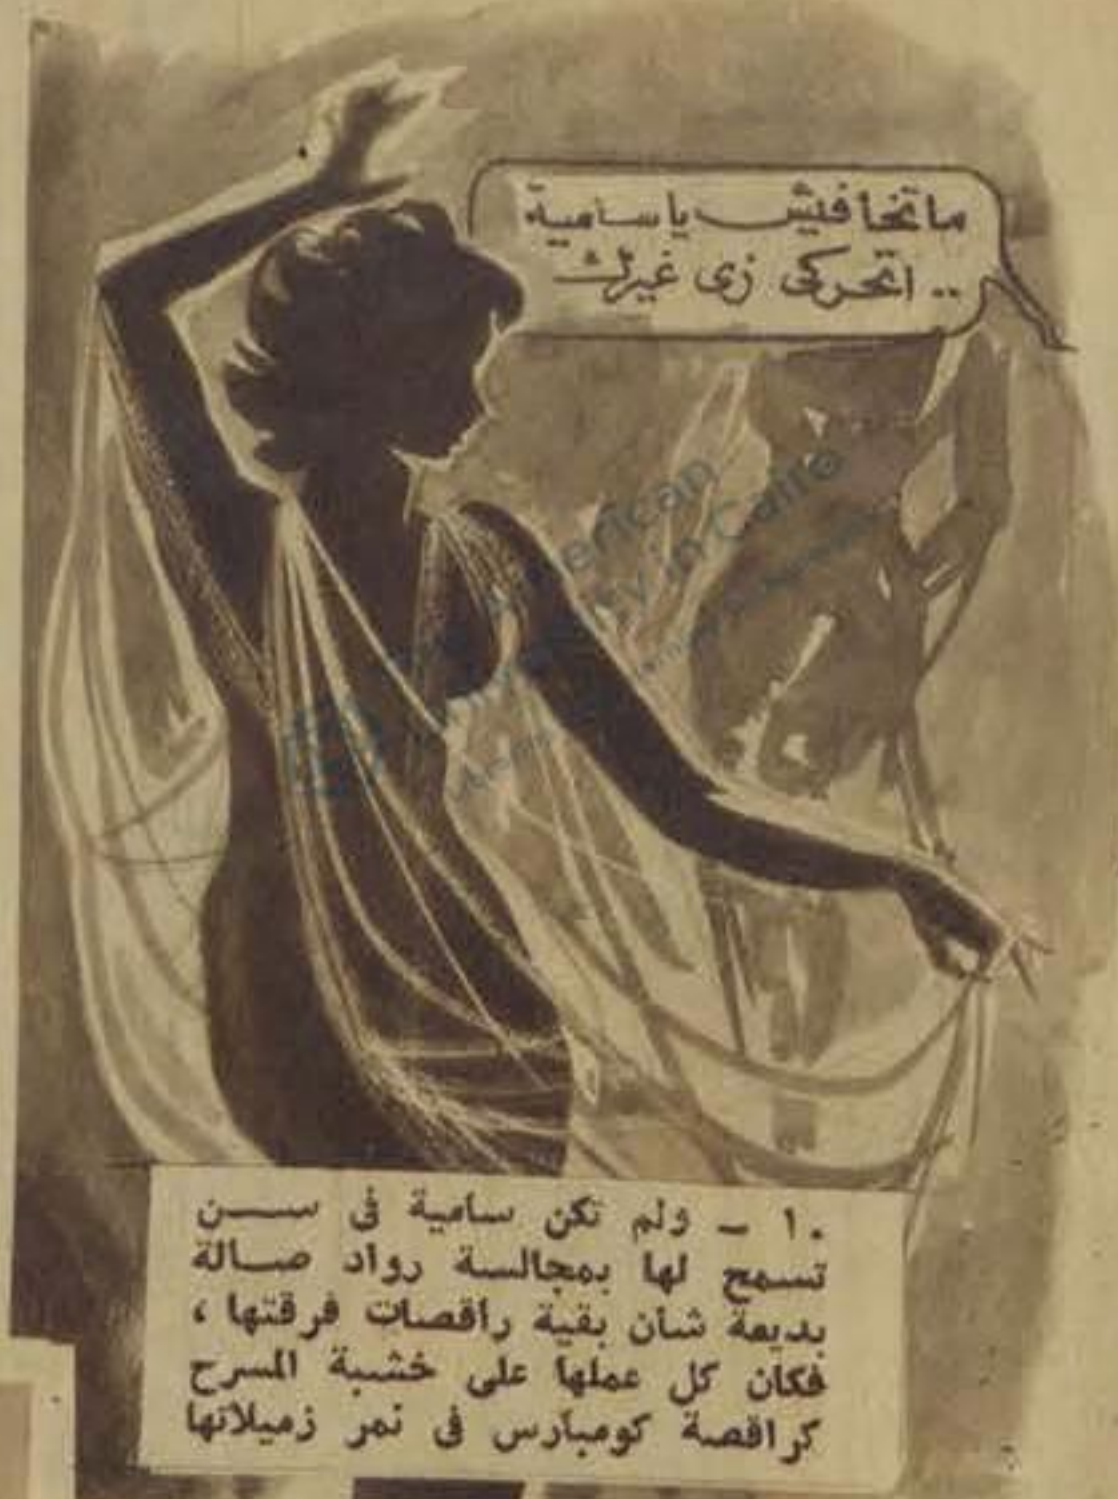 ماتخافيش ياسامية
.. اتحركى زى غيرك
١٠ - ولم تكن سامية فى سن
تسمح لها بمجالسة رواد صالة
بديعة شأن بقية راقصات فرقتها ،
فكان كل عملها على خشبة المسرح
كراقصة كومبارس فى نمر زميلاتها